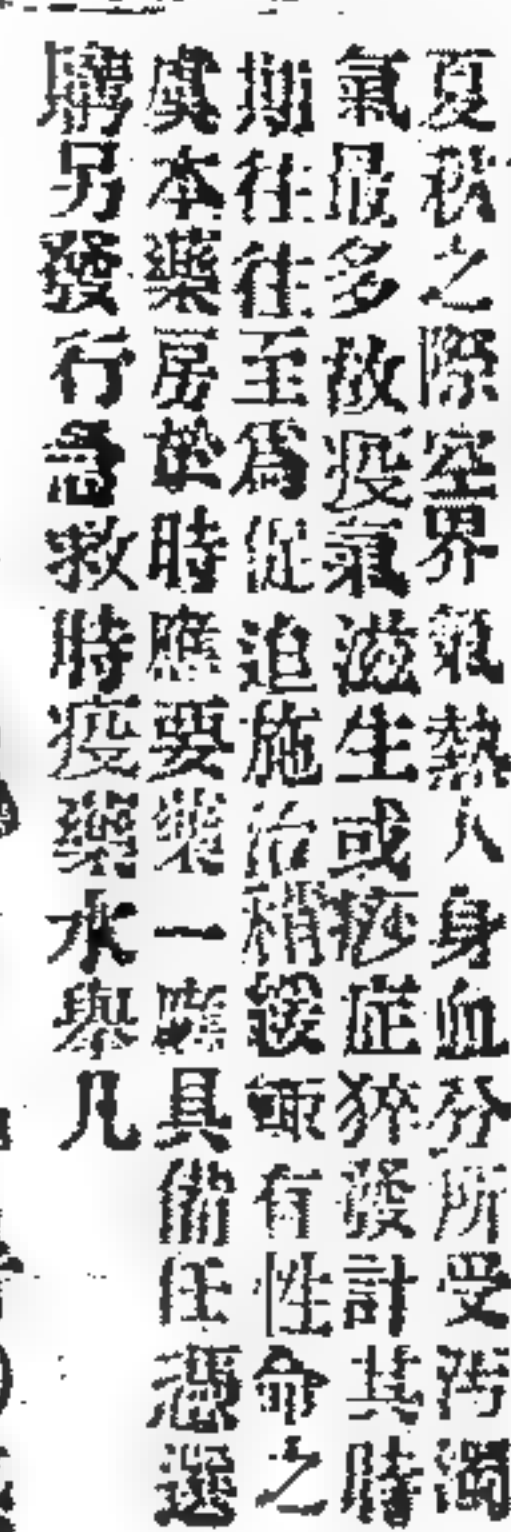 夏秋之際空界氣熱人身血分所受汚濁
氣最多故疫氣滋生或痧症猝發計其時
期往往至為促追施治稍緩輙有性命之
虞本藥房於時應要藥一應具備任憑選
購另發行急救時疫藥水與凡